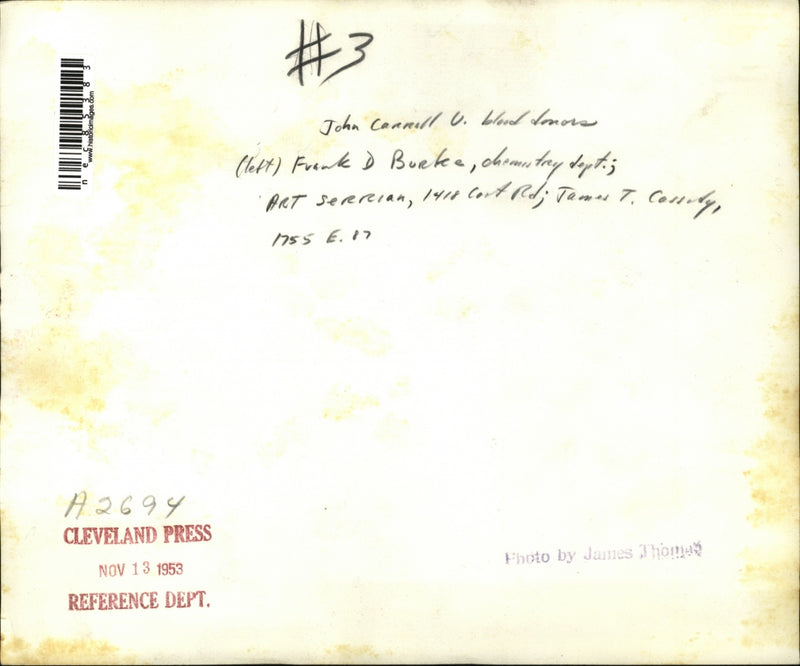 #3
John Carroll U. blood donors
(left) Frank D Burke, chemistry dept.;
ART SERRIAN, 1418 Cort Rd; James T. Cassidy,
1755 E. 87
nec85383
www.historicimages.com
A2694
CLEVELAND PRESS
NOV 13 1953
REFERENCE DEPT.
Photo by James Thomas